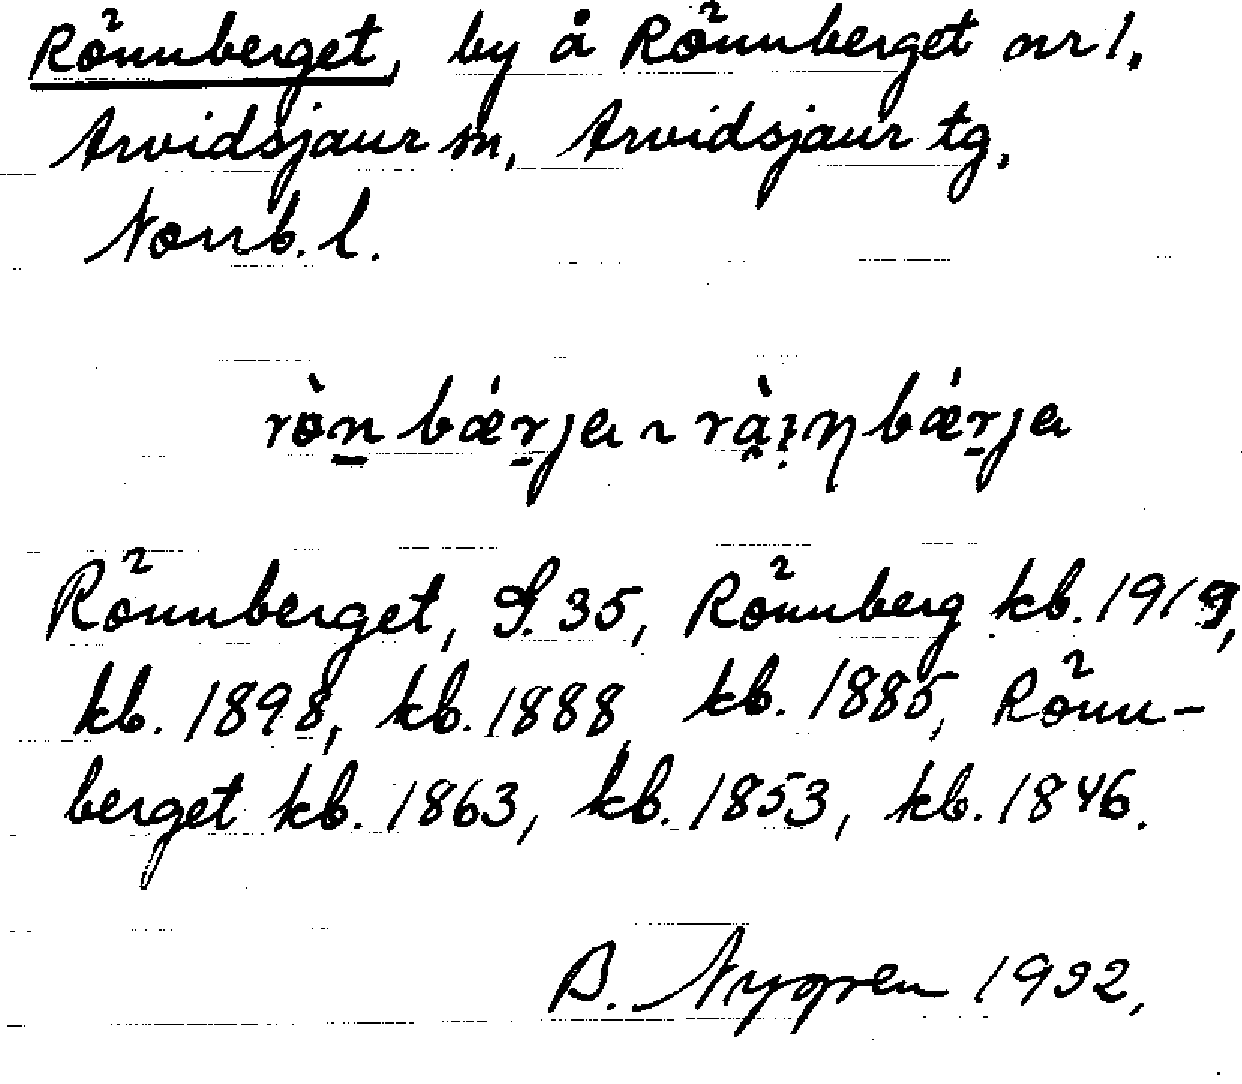 Rönnberget, by å Rönnberget nr 1,
Arvidsjaur sn, Arvidsjaur tg,
Norrb. l.
rò̀n bǽrja ~ rà̤i̩ŋ bǽrja
Rönnberget, S. 35, Rönnberg kb. 1919,
kb. 1898, kb. 1888, kb. 1885, Rönn-
berget kb. 1863, kb. 1853, kb. 1846.
B. Nygren 1932,